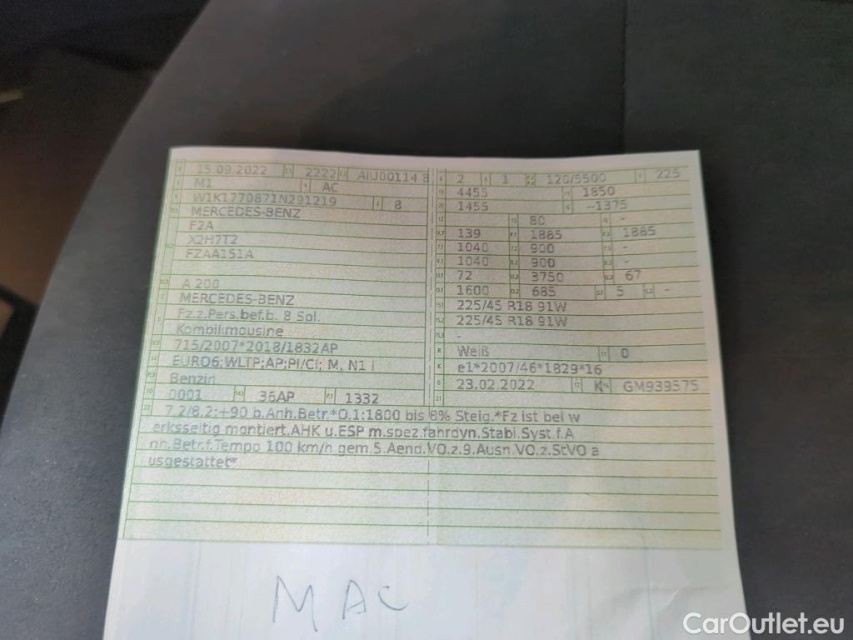 15.09.2022 2222 AIU00114 8
M1 AC
W1K1770871N291219 8
MERCEDES-BENZ
F2A
X2H7T2
FZAA151A
A 200
MERCEDES-BENZ
Fz.z.Pers.bef.b. 8 Spl.
Kombilimousine
715/2007*2018/1832AP
EURO6;WLTP;AP;PI/CI; M, N1 I
Benzin
0001 36AP 1332
2 1 120/5500 225
4455 1850
1455 -1375
80 -
139 1885 1885
1040 900 -
1040 900 -
72 3750 67
1600 685 5 -
225/45 R18 91W
225/45 R18 91W
-
Weiß 0
e1*2007/46*1829*16
23.02.2022 K GM939575
7.2/8.2:+90 b.Anh.Betr.*O.1:1800 bis 8% Steig.*Fz ist bei w
erksseitig montiert.AHK u.ESP m.spez.fahrdyn.Stabi.Syst.f.A
nh.Betr.f.Tempo 100 km/h gem.5.Aend.VO.z.9.Ausn.VO.z.StVO a
usgestattet*
MAC
CarOutlet.eu